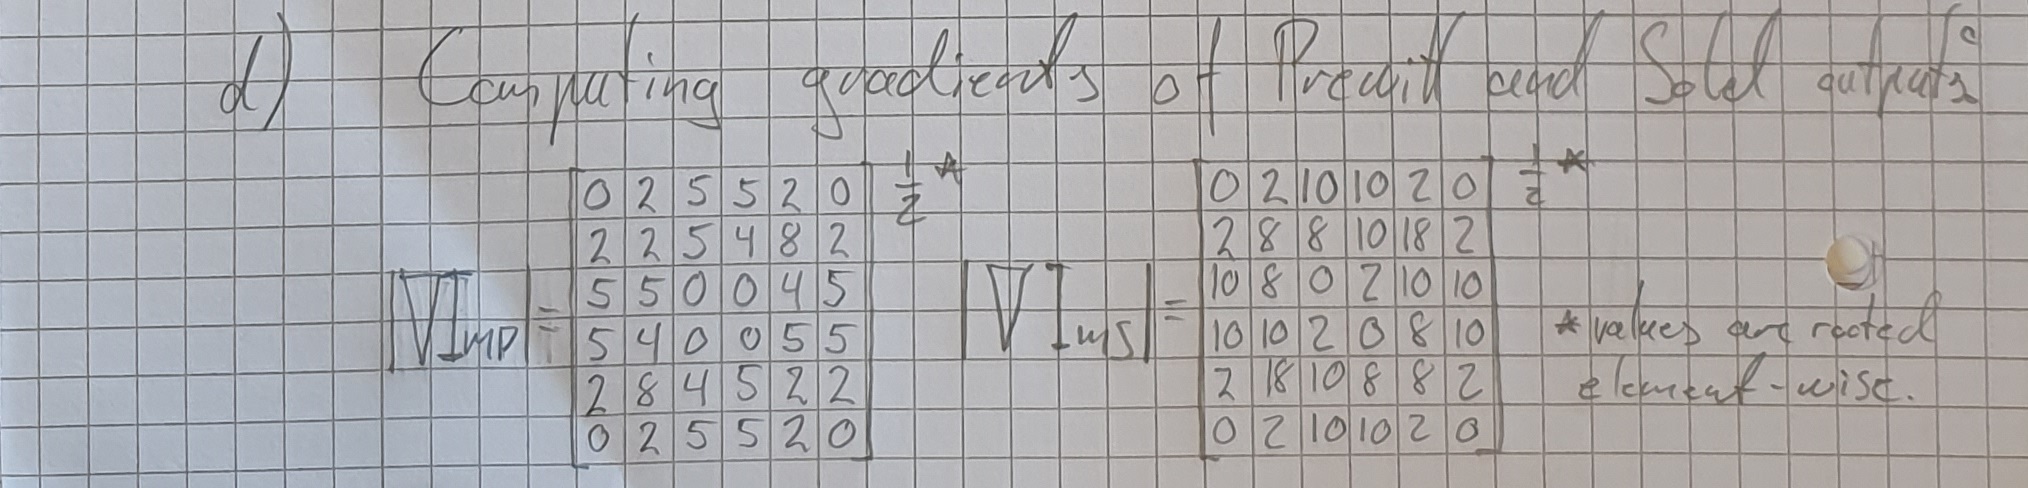 d) Computing gradients of Prewitt and Sobel outputs
|∇I_MP| = [ 0 2 5 5 2 0 ]^½ *
2 2 5 4 8 2
5 5 0 0 4 5
5 4 0 0 5 5
2 8 4 5 2 2
0 2 5 5 2 0
|∇I_MS| = [ 0 2 10 10 2 0 ]^½ *
2 8 8 10 18 2
10 8 0 2 10 10
10 10 2 0 8 10
2 18 10 8 8 2
0 2 10 10 2 0
* values are rooted
element-wise.